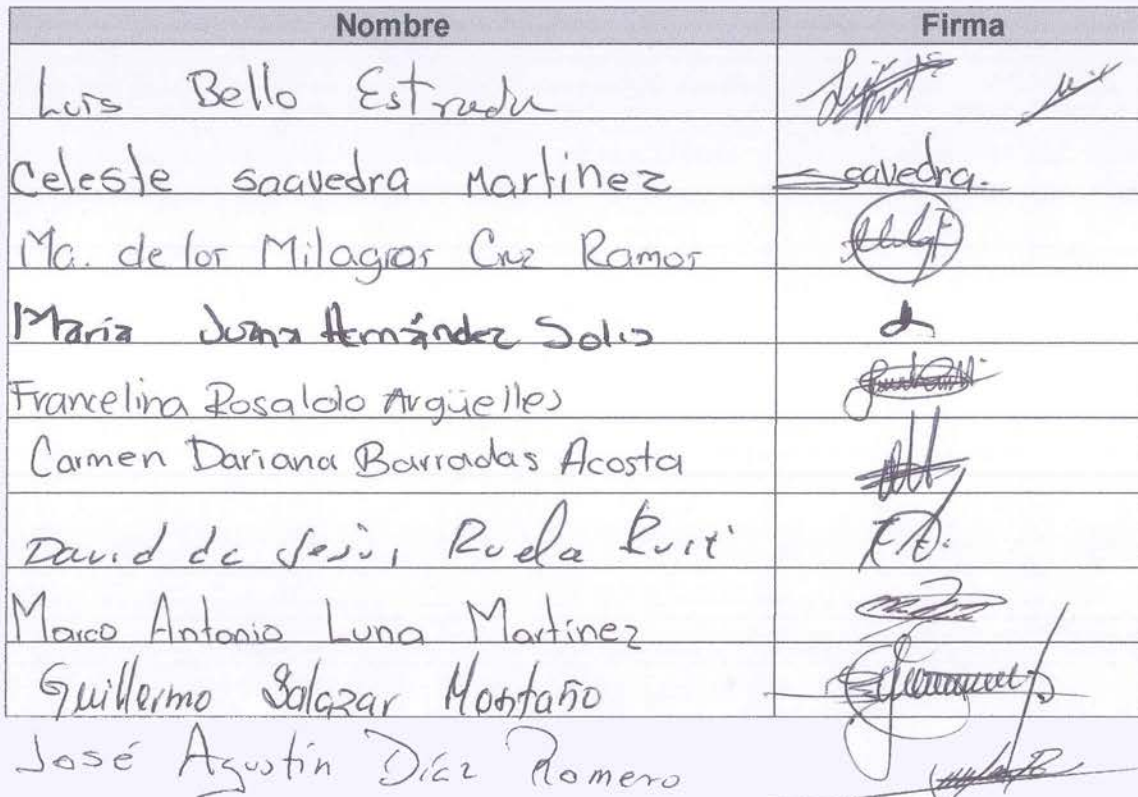 Nombre Firma
Luis Bello Estrada
Celeste saavedra Martinez Saavedra.
Ma. de los Milagros Cruz Ramos
María Juana Hernández Solis
Francelina Rosaldo Argüelles
Carmen Dariana Barradas Acosta
David de Jesús Ruela Ruiz
Marco Antonio Luna Martinez
Guillermo Salazar Montaño
José Agustín Díaz Romero